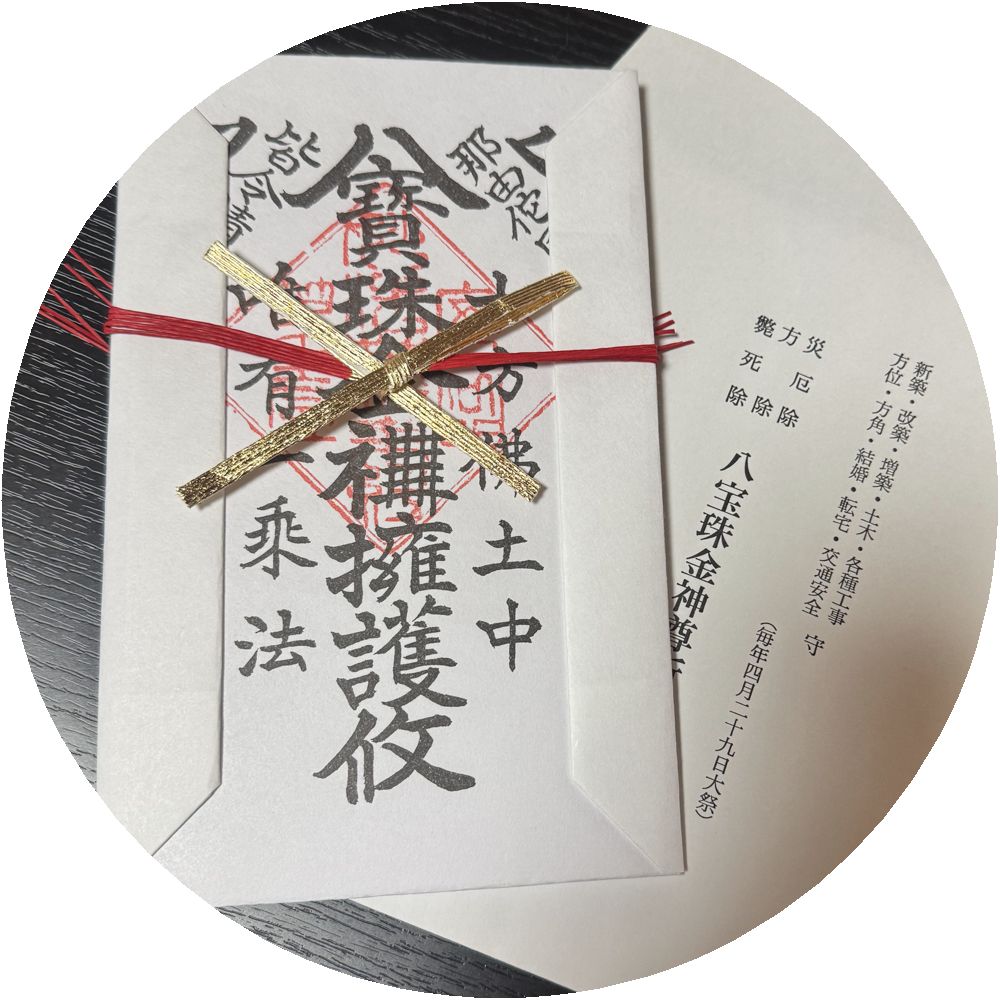 那由佗
十方佛土中
八寶珠金神擁護攸
皆令
唯有一乘法
新築・改築・増築・土木・各種工事
方位・方角・結婚・転宅・交通安全 守
災厄除
方除
斃死除
八宝珠金神尊
(毎年四月二十九日大祭)